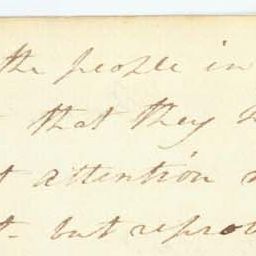 the people in
that they
attention
but repro